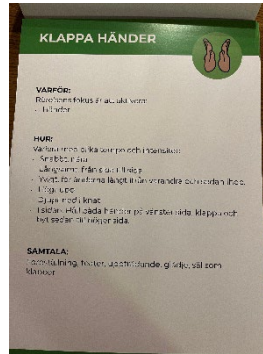 KLAPPA HÄNDER
VARFÖR:
Rörelsens fokus är att aktivera:
- Händer
HUR:
Variera med olika tempo och intensitet:
- Snabbt, nära
- Långsamt, från
- händerna långt ifrån varandra och sedan ihop.
- Högt upp
- Djupt ned i knät
- I sidan. Håll båda händer på vänster sida, klappa och
byt sedan till höger sida.
SAMTALA:
föreställning, teater, uppträdande, glädje, väl som